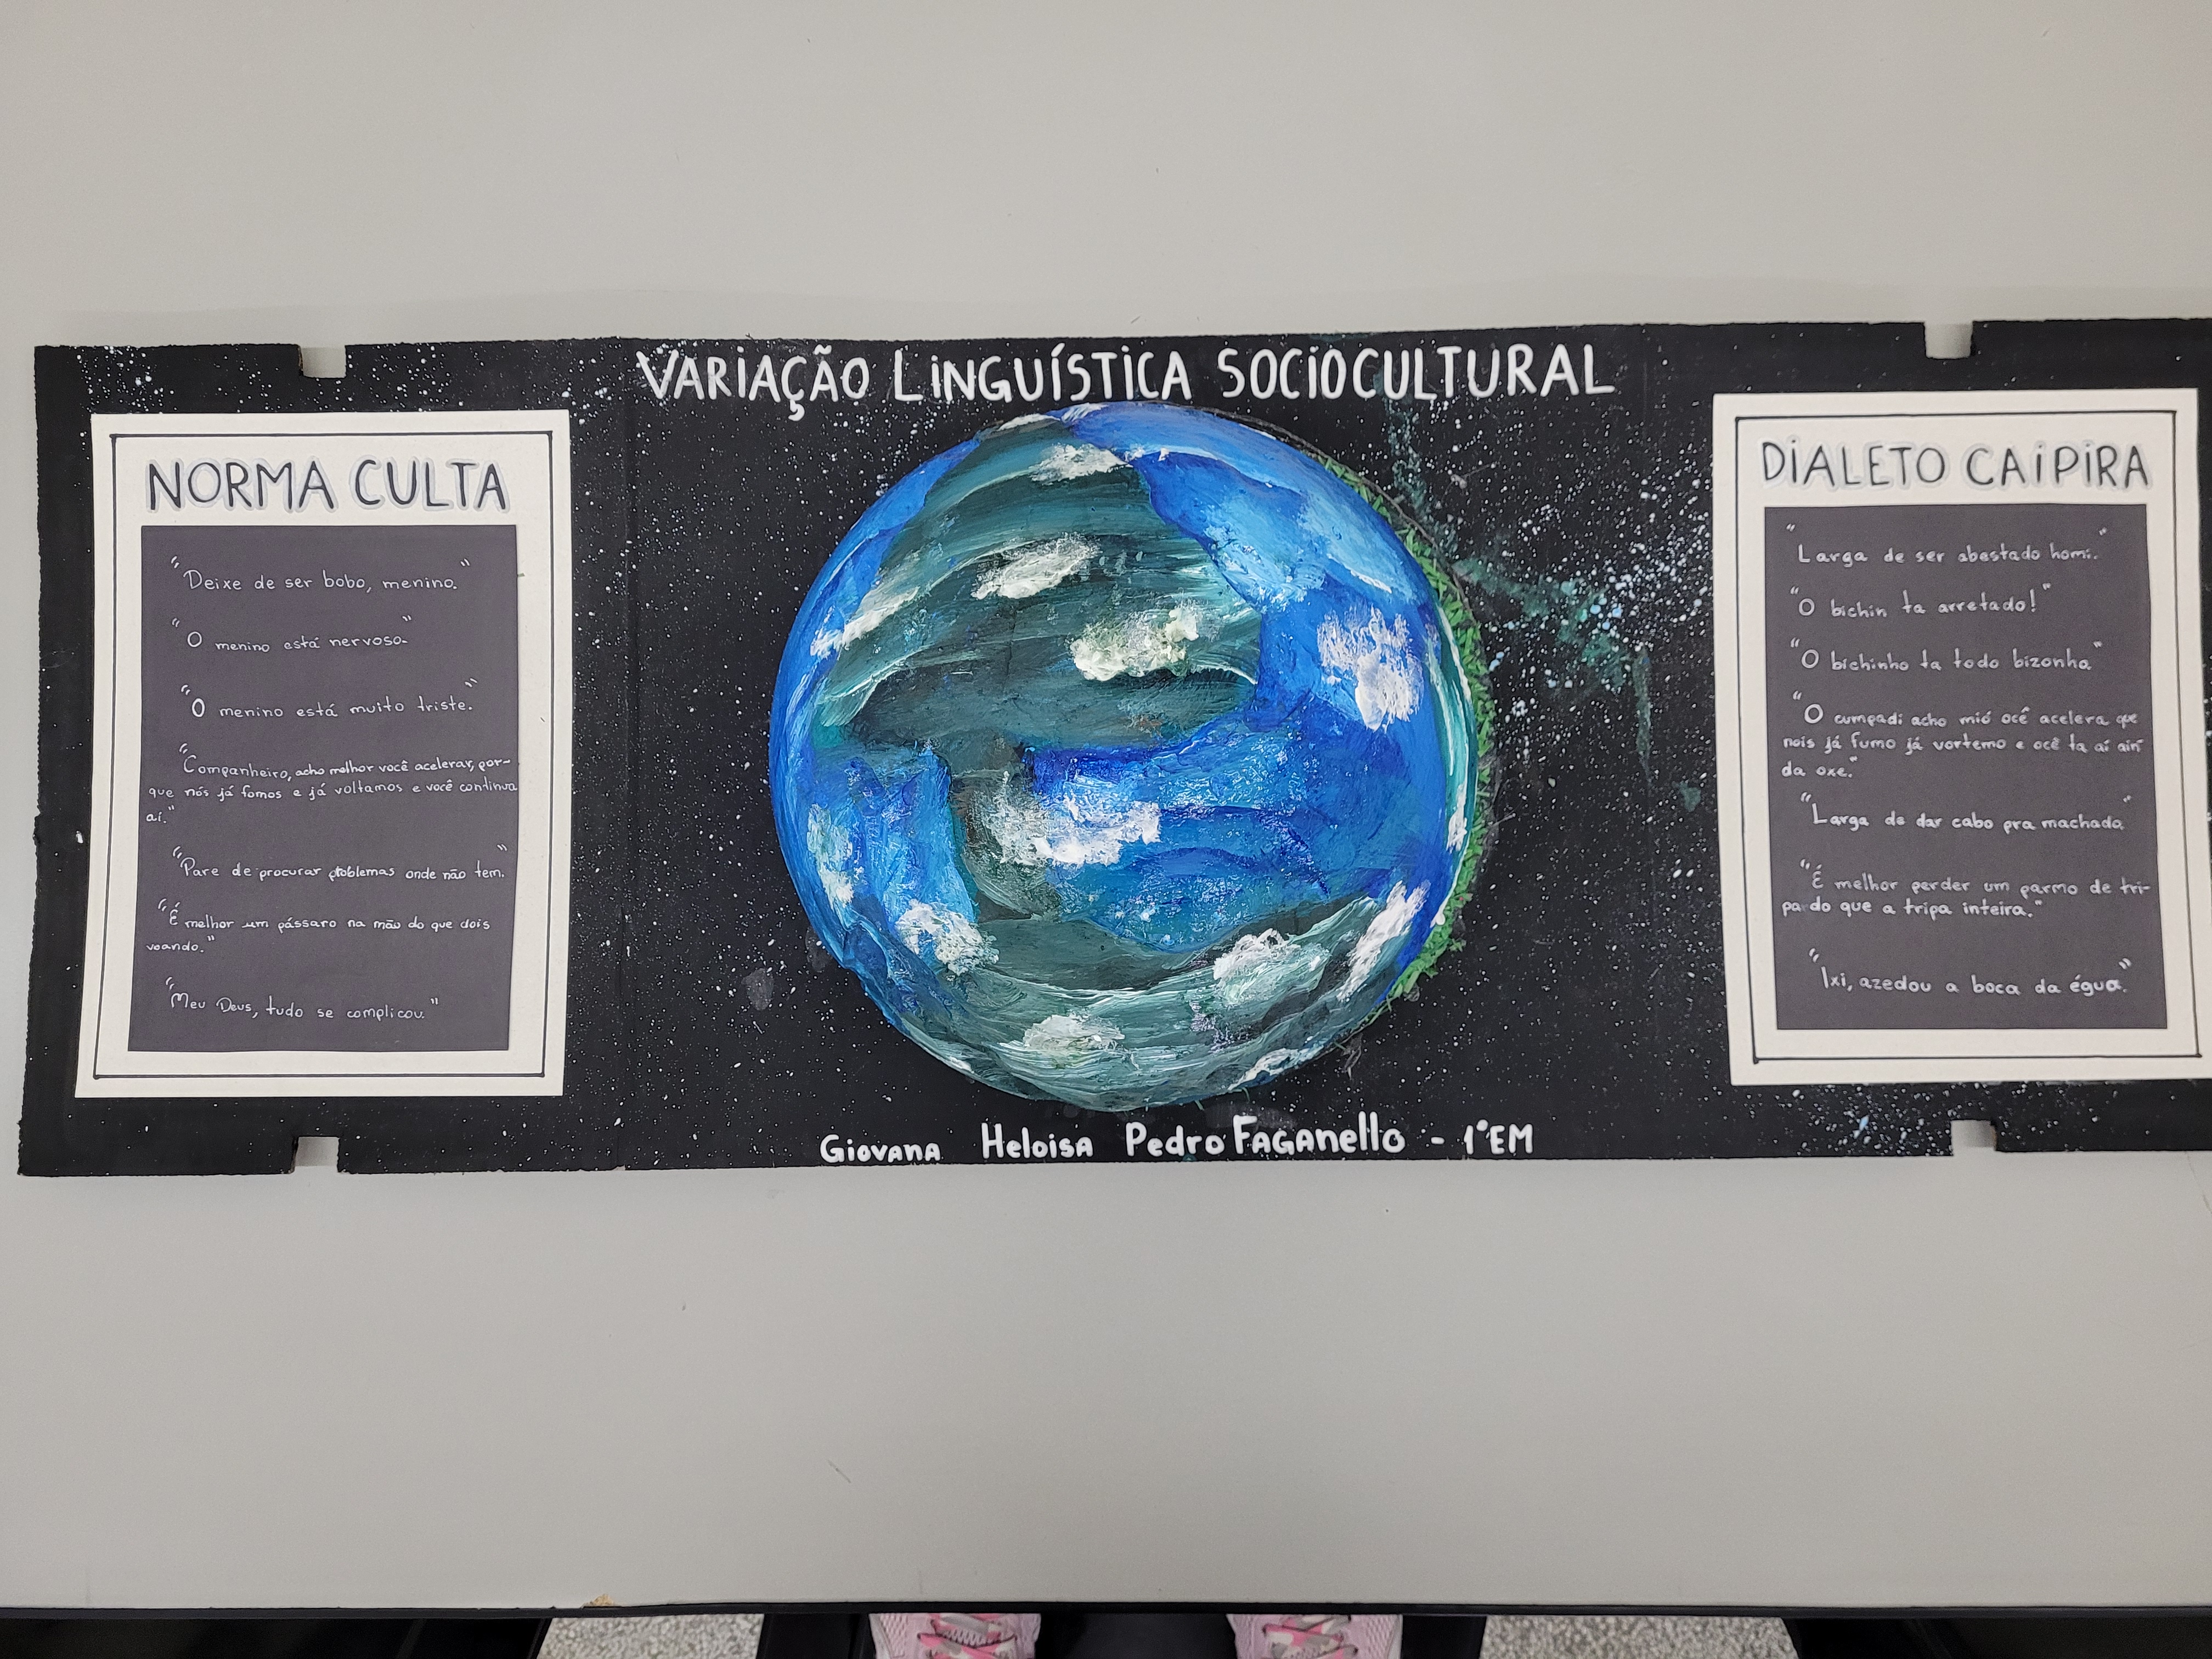 VARIAÇÃO LINGUÍSTICA SOCIOCULTURAL
NORMA CULTA
"Deixe de ser bobo, menino."
"O menino está nervoso."
"O menino está muito triste."
"Companheiro, acho melhor você acelerar, por-
que nós já fomos e já voltamos e você continua
aí."
"Pare de procurar problemas onde não tem."
"É melhor um pássaro na mão do que dois
voando."
"Meu Deus, tudo se complicou."
DIALETO CAIPIRA
"Larga de ser abestado homi."
"O bichin ta arretado!"
"O bichinho ta todo bizonho"
"O cumpadi acho mió ocê acelera que
nois já fumo já vortemo e ocê ta aí ain
da oxe."
"Larga de dar cabo pra machado"
"É melhor perder um parmo de tri-
pa do que a tripa inteira."
"Ixi, azedou a boca da égua."
Giovana Heloisa Pedro Faganello - 1°EM